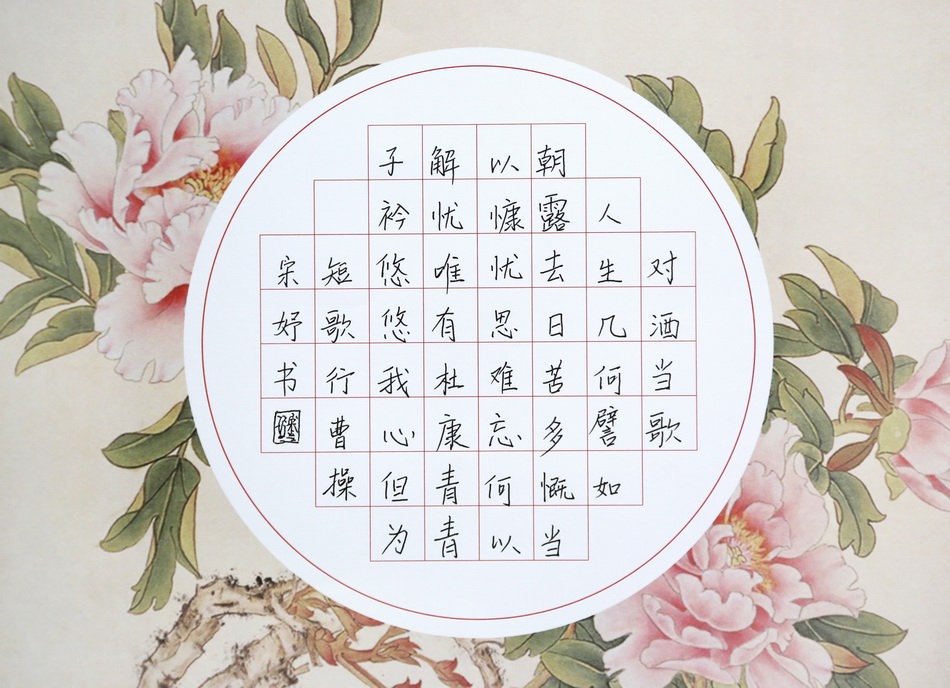 对酒当歌
人生几何譬如
朝露去日苦多慨当
以慷忧思难忘何以
解忧唯有杜康青青
子衿悠悠我心但为
短歌行曹操
宋妤书